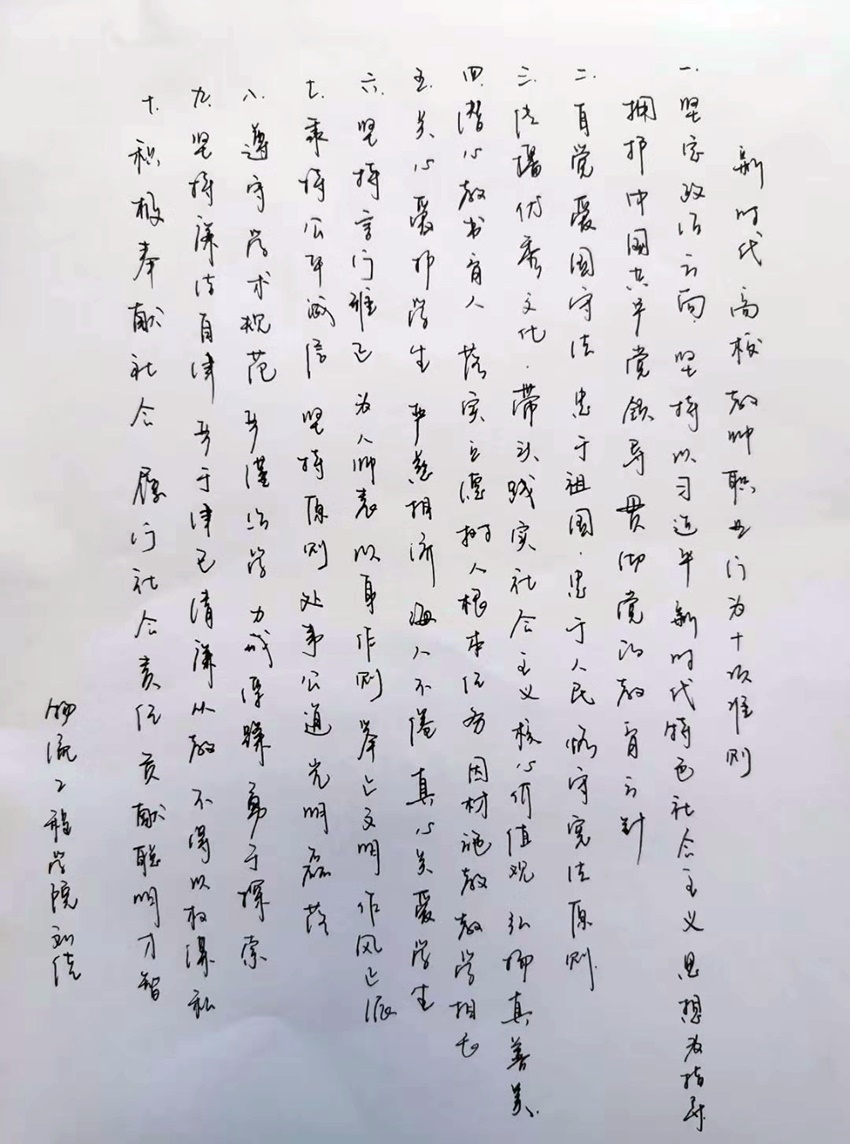 新时代高校教师职业行为十项准则
一.坚定政治方向.坚持以习近平新时代特色社会主义思想为指导
拥护中国共产党领导贯彻党的教育方针
二.自觉爱国守法 忠于祖国.忠于人民 恪守宪法原则.
三.传播优秀文化.带头践实社会主义核心价值观 弘扬真善美.
四.潜心教书育人 落实立德树人根本任务 因材施教教学相长
五.关心爱护学生 严慈相济 诲人不倦 真心关爱学生
六.坚持言行雅正 为人师表以身作则 举止文明 作风正派
七.秉持公平诚信 坚持原则处事公道 光明磊落
八.遵守学术规范 严谨治学 力戒浮躁 勇于探索
九.坚持廉洁自律 严于律己清廉从教 不得以权谋私
十.积极奉献社会 履行社会责任 贡献聪明才智
物流工程学院